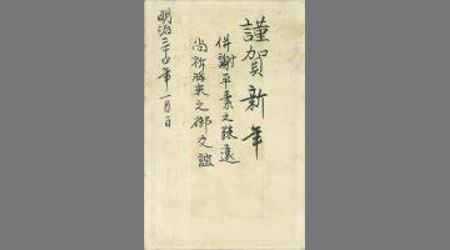 謹賀新年
併謝平素之疎遠
尚祈将来之御交誼
明治三十四年一月一日